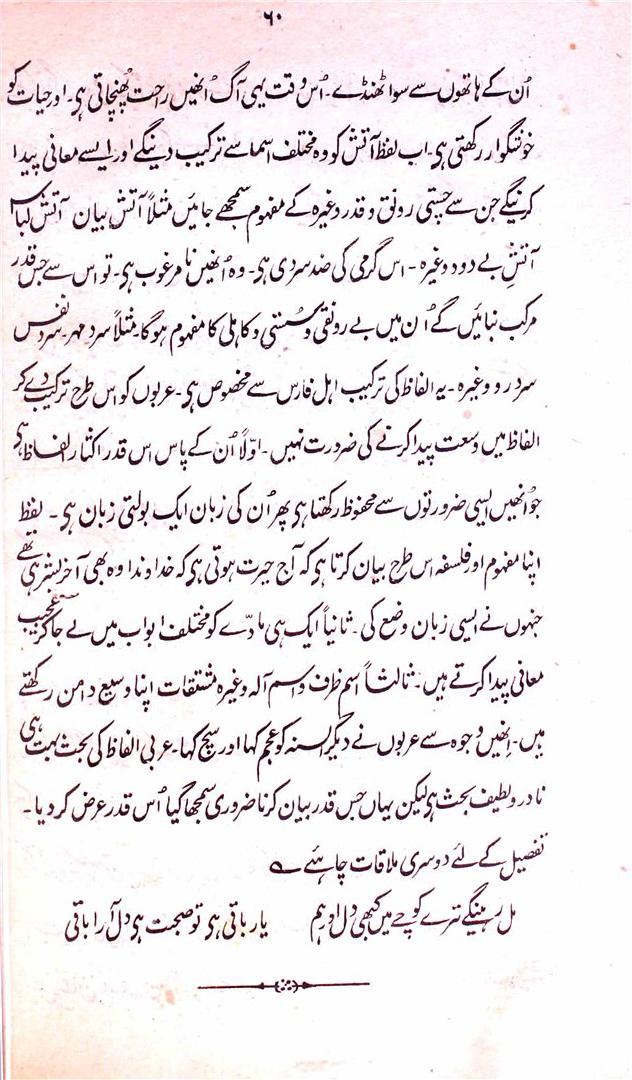 ۶۰
اُن کے ہاتھوں سے سوا ٹھنڈے۔ اُس وقت یہی آگ اُنھیں راحت پُھنچاتی ہی۔ اور حیات کو
خوشگوار رکھتی ہی۔ اب لفظ آتش کو وہ مختلف اسما سے ترکیب دینگے اور ایسے معانی پیدا
کرینگے جن سے چستی رونق و قدر وغیرہ کے مفہوم سمجھے جائیں مثلاً آتش بیان آتش لباس
آتشِ بے دود وغیرہ۔ اس گرمی کی ضد سردی ہی۔ وہ اُنھیں نامرغوب ہی۔ تو اس سے جس قدر
مرکب بنائیں گے اُن میں بے رونقی و سُستی و کاہلی کا مفہوم ہوگا۔ مثلاً سرد مہر۔ سرد نفس
سرد رو وغیرہ۔ یہ الفاظ کی ترکیب اہل فارس سے مخصوص ہی۔ عربوں کو اس طرح ترکیب دے کر
الفاظ میں وسعت پیدا کرنے کی ضرورت نہیں۔ اوّلاً اُن کے پاس اس قدر اکثار الفاظ ہی
جو اُنھیں ایسی ضرورتوں سے محفوظ رکھتا ہی پھر اُن کی زبان ایک بولتی زبان ہی۔ لفظ
اپنا مفہوم اور فلسفہ اس طرح بیان کرتا ہی کہ آج حیرت ہوتی ہی کہ خداوندا وہ بھی آخر بشر ہی تھے
جنہوں نے ایسی زبان وضع کی۔ ثانیاً ایک ہی مادّے کو مختلف ابواب میں لے جا کر عجیب
معانی پیدا کرتے ہیں۔ ثالثاً اسم ظرف و اسم آلہ وغیرہ مشتقات اپنا وسیع دامن رکھتے
ہیں۔ انھیں وجوہ سے عربوں نے دیگر السنہ کو عجم کہا اور سچ کہا۔ عربی الفاظ کی بحث بہت ہی
نادر و لطیف بحث ہی لیکن یہاں جس قدر بیان کرنا ضروری سمجھا گیا اُس قدر عرض کر دیا۔
تفصیل کے لئے دوسری ملاقات چاہئے ؎
مل رہینگے ترے کوچے میں کبھی دل اور ہم یار باقی ہی تو صحبت ہی دل آرا باقی